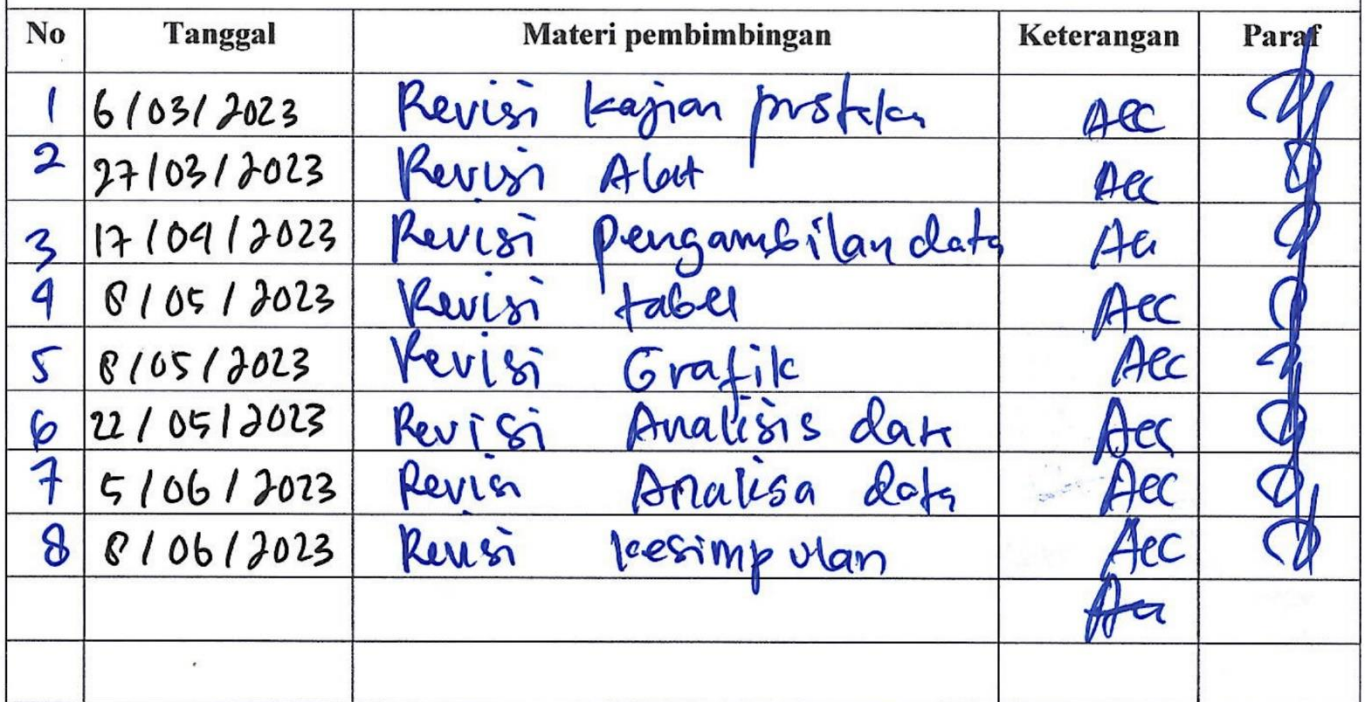 No Tanggal Materi pembimbingan Keterangan Paraf
1 6/03/2023 Revisi kajian pustaka Acc
2 27/03/2023 Revisi Alat Acc
3 17/04/2023 Revisi pengambilan data Acc
4 8/05/2023 Revisi tabel Acc
5 8/05/2023 Revisi Grafik Acc
6 22/05/2023 Revisi Analisis data Acc
7 5/06/2023 Revisi Analisa data Acc
8 8/06/2023 Revisi kesimpulan Acc
Acc